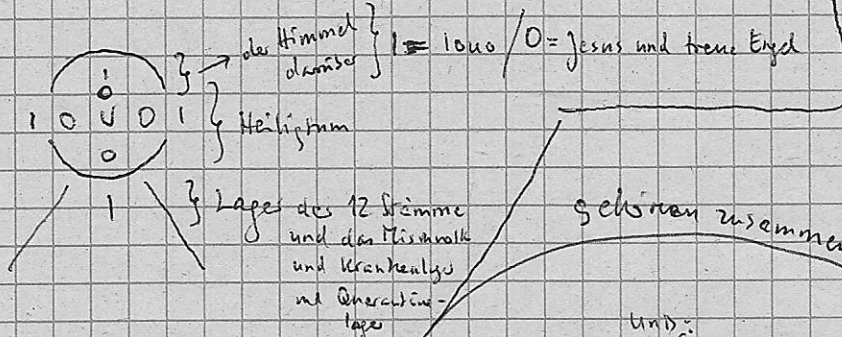 der Himmel
darüber
1 = 1000 / 0 = Jesus und treue Engel
1
0
1 0 U 0 1
0
Heiligtum
1
Lager der 12 Stämme
und das Mischvolk
und Krankenlager
und Quarantäne-
lager
gehören zusammen
und: